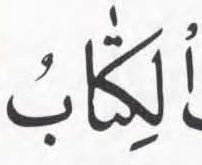 ٱلْكِتَٰبُ